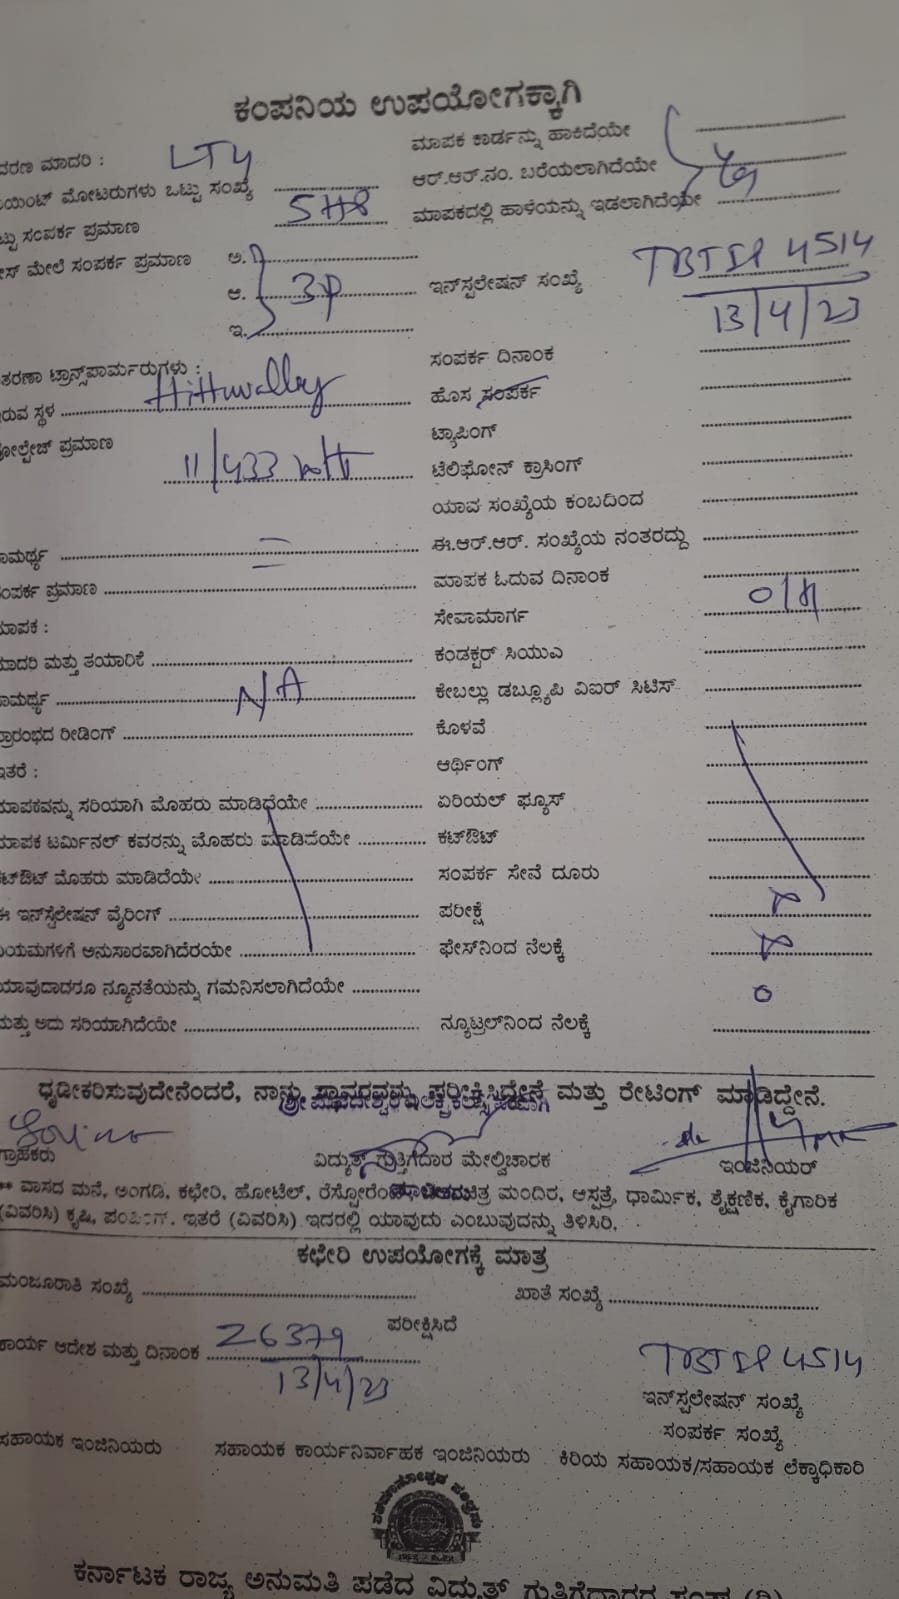 ಕಂಪನಿಯ ಉಪಯೋಗಕ್ಕಾಗಿ
ಮಾಪಕ ಕಾರ್ಡನ್ನು ಹಾಕಿದೆಯೇ
ದರಣ ಮಾದರಿ : LT4
ಆರ್.ಆರ್.ನಂ. ಬರೆಯಲಾಗಿದೆಯೇ
ಯಿಂಟ್ ಮೋಟರುಗಳು ಒಟ್ಟು ಸಂಖ್ಯೆ
ಮಾಪಕದಲ್ಲಿ ಹಾಳೆಯನ್ನು ಇಡಲಾಗಿದೆಯೇ
ಟ್ಟು ಸಂಪರ್ಕ ಪ್ರಮಾಣ 5HP
ೇಸ್ ಮೇಲೆ ಸಂಪರ್ಕ ಪ್ರಮಾಣ ಅ.
ಆ. 3P ಇನ್‌ಸ್ಪಲೇಷನ್ ಸಂಖ್ಯೆ 4514
ಇ. 13/4/23
ಸಂಪರ್ಕ ದಿನಾಂಕ
ತರಣಾ ಟ್ರಾನ್ಸ್‌ಪಾರ್ಮರುಗಳು :
ಇರುವ ಸ್ಥಳ ಹೊಸ ಸಂಪರ್ಕ
ವೋಲ್ಟೇಜ್ ಪ್ರಮಾಣ 11/433 ಟ್ಯಾಪಿಂಗ್
ಟೆಲಿಫೋನ್ ಕ್ರಾಸಿಂಗ್
ಯಾವ ಸಂಖ್ಯೆಯ ಕಂಬದಿಂದ
ಾಮರ್ಥ್ಯ ಈ.ಆರ್.ಆರ್. ಸಂಖ್ಯೆಯ ನಂತರದ್ದು
ಸಂಪರ್ಕ ಪ್ರಮಾಣ ಮಾಪಕ ಓದುವ ದಿನಾಂಕ
ಮಾಪಕ : ಸೇವಾಮಾರ್ಗ
ಮಾದರಿ ಮತ್ತು ತಯಾರಿಕೆ ಕಂಡಕ್ಟರ್ ಸಿಯುಎ
ಾಮರ್ಥ್ಯ N/A ಕೇಬಲ್ಲು ಡಬ್ಲ್ಯೂಪಿ ವಿಐರ್ ಸಿಟಿಸ್
ಪ್ರಾರಂಭದ ರೀಡಿಂಗ್ ಕೊಳವೆ
ಇತರೆ : ಆರ್ಥಿಂಗ್
ಮಾಪಕವನ್ನು ಸರಿಯಾಗಿ ಮೊಹರು ಮಾಡಿದೆಯೇ ಏರಿಯಲ್ ಫ್ಯೂಸ್
ಮಾಪಕ ಟರ್ಮಿನಲ್ ಕವರನ್ನು ಮೊಹರು ಮಾಡಿದೆಯೇ ಕಟ್‌ಔಟ್
ಕಟ್‌ಔಟ್ ಮೊಹರು ಮಾಡಿದೆಯೇ ಸಂಪರ್ಕ ಸೇವೆ ದೂರು
ಈ ಇನ್‌ಸ್ಟಲೇಷನ್ ವೈರಿಂಗ್ ಪರೀಕ್ಷೆ
ನಿಯಮಗಳಿಗೆ ಅನುಸಾರವಾಗಿದೆರಯೇ ಫೇಸ್‌ನಿಂದ ನೆಲಕ್ಕೆ
ಯಾವುದಾದರೂ ನ್ಯೂನತೆಯನ್ನು ಗಮನಿಸಲಾಗಿದೆಯೇ 0
ಮತ್ತು ಅದು ಸರಿಯಾಗಿದೆಯೇ ನ್ಯೂಟ್ರಲ್‌ನಿಂದ ನೆಲಕ್ಕೆ
ಧೃಡೀಕರಿಸುವುದೇನೆಂದರೆ, ನಾನು ಸ್ಥಾವರವನ್ನು ಪರೀಕ್ಷಿಸಿದ್ದೇನೆ ಮತ್ತು ರೇಟಿಂಗ್ ಮಾಡಿದ್ದೇನೆ.
ಗ್ರಾಹಕರು ವಿದ್ಯುತ್ ಗುತ್ತಿಗೆದಾರ ಮೇಲ್ವಿಚಾರಕ ಇಂಜಿನಿಯರ್
** ವಾಸದ ಮನೆ, ಅಂಗಡಿ, ಕಛೇರಿ, ಹೋಟೆಲ್, ಮಂದಿರ, ಆಸ್ಪತ್ರೆ, ಧಾರ್ಮಿಕ, ಶೈಕ್ಷಣಿಕ, ಕೈಗಾರಿಕ
(ವಿವರಿಸಿ) ಕೃಷಿ, ಪಂಪಿಂಗ್, ಇತರೆ (ವಿವರಿಸಿ) ಇದರಲ್ಲಿ ಯಾವುದು ಎಂಬುವುದನ್ನು ತಿಳಿಸಿರಿ.
ಕಛೇರಿ ಉಪಯೋಗಕ್ಕೆ ಮಾತ್ರ
ಮಂಜೂರಾತಿ ಸಂಖ್ಯೆ ಖಾತೆ ಸಂಖ್ಯೆ
ಪರೀಕ್ಷಿಸಿದೆ
ಕಾರ್ಯ ಆದೇಶ ಮತ್ತು ದಿನಾಂಕ 26379 4514
13/4/23 ಇನ್‌ಸ್ಪಲೇಷನ್ ಸಂಖ್ಯೆ
ಸಂಪರ್ಕ ಸಂಖ್ಯೆ
ಸಹಾಯಕ ಇಂಜಿನಿಯರು ಸಹಾಯಕ ಕಾರ್ಯನಿರ್ವಾಹಕ ಇಂಜಿನಿಯರು ಕಿರಿಯ ಸಹಾಯಕ/ಸಹಾಯಕ ಲೆಕ್ಕಾಧಿಕಾರಿ
ಕರ್ನಾಟಕ ರಾಜ್ಯ ಅನುಮತಿ ಪಡೆದ ವಿದ್ಯುತ್ ಗುತ್ತಿಗೆದಾರರ ಸಂಘ (ರಿ)